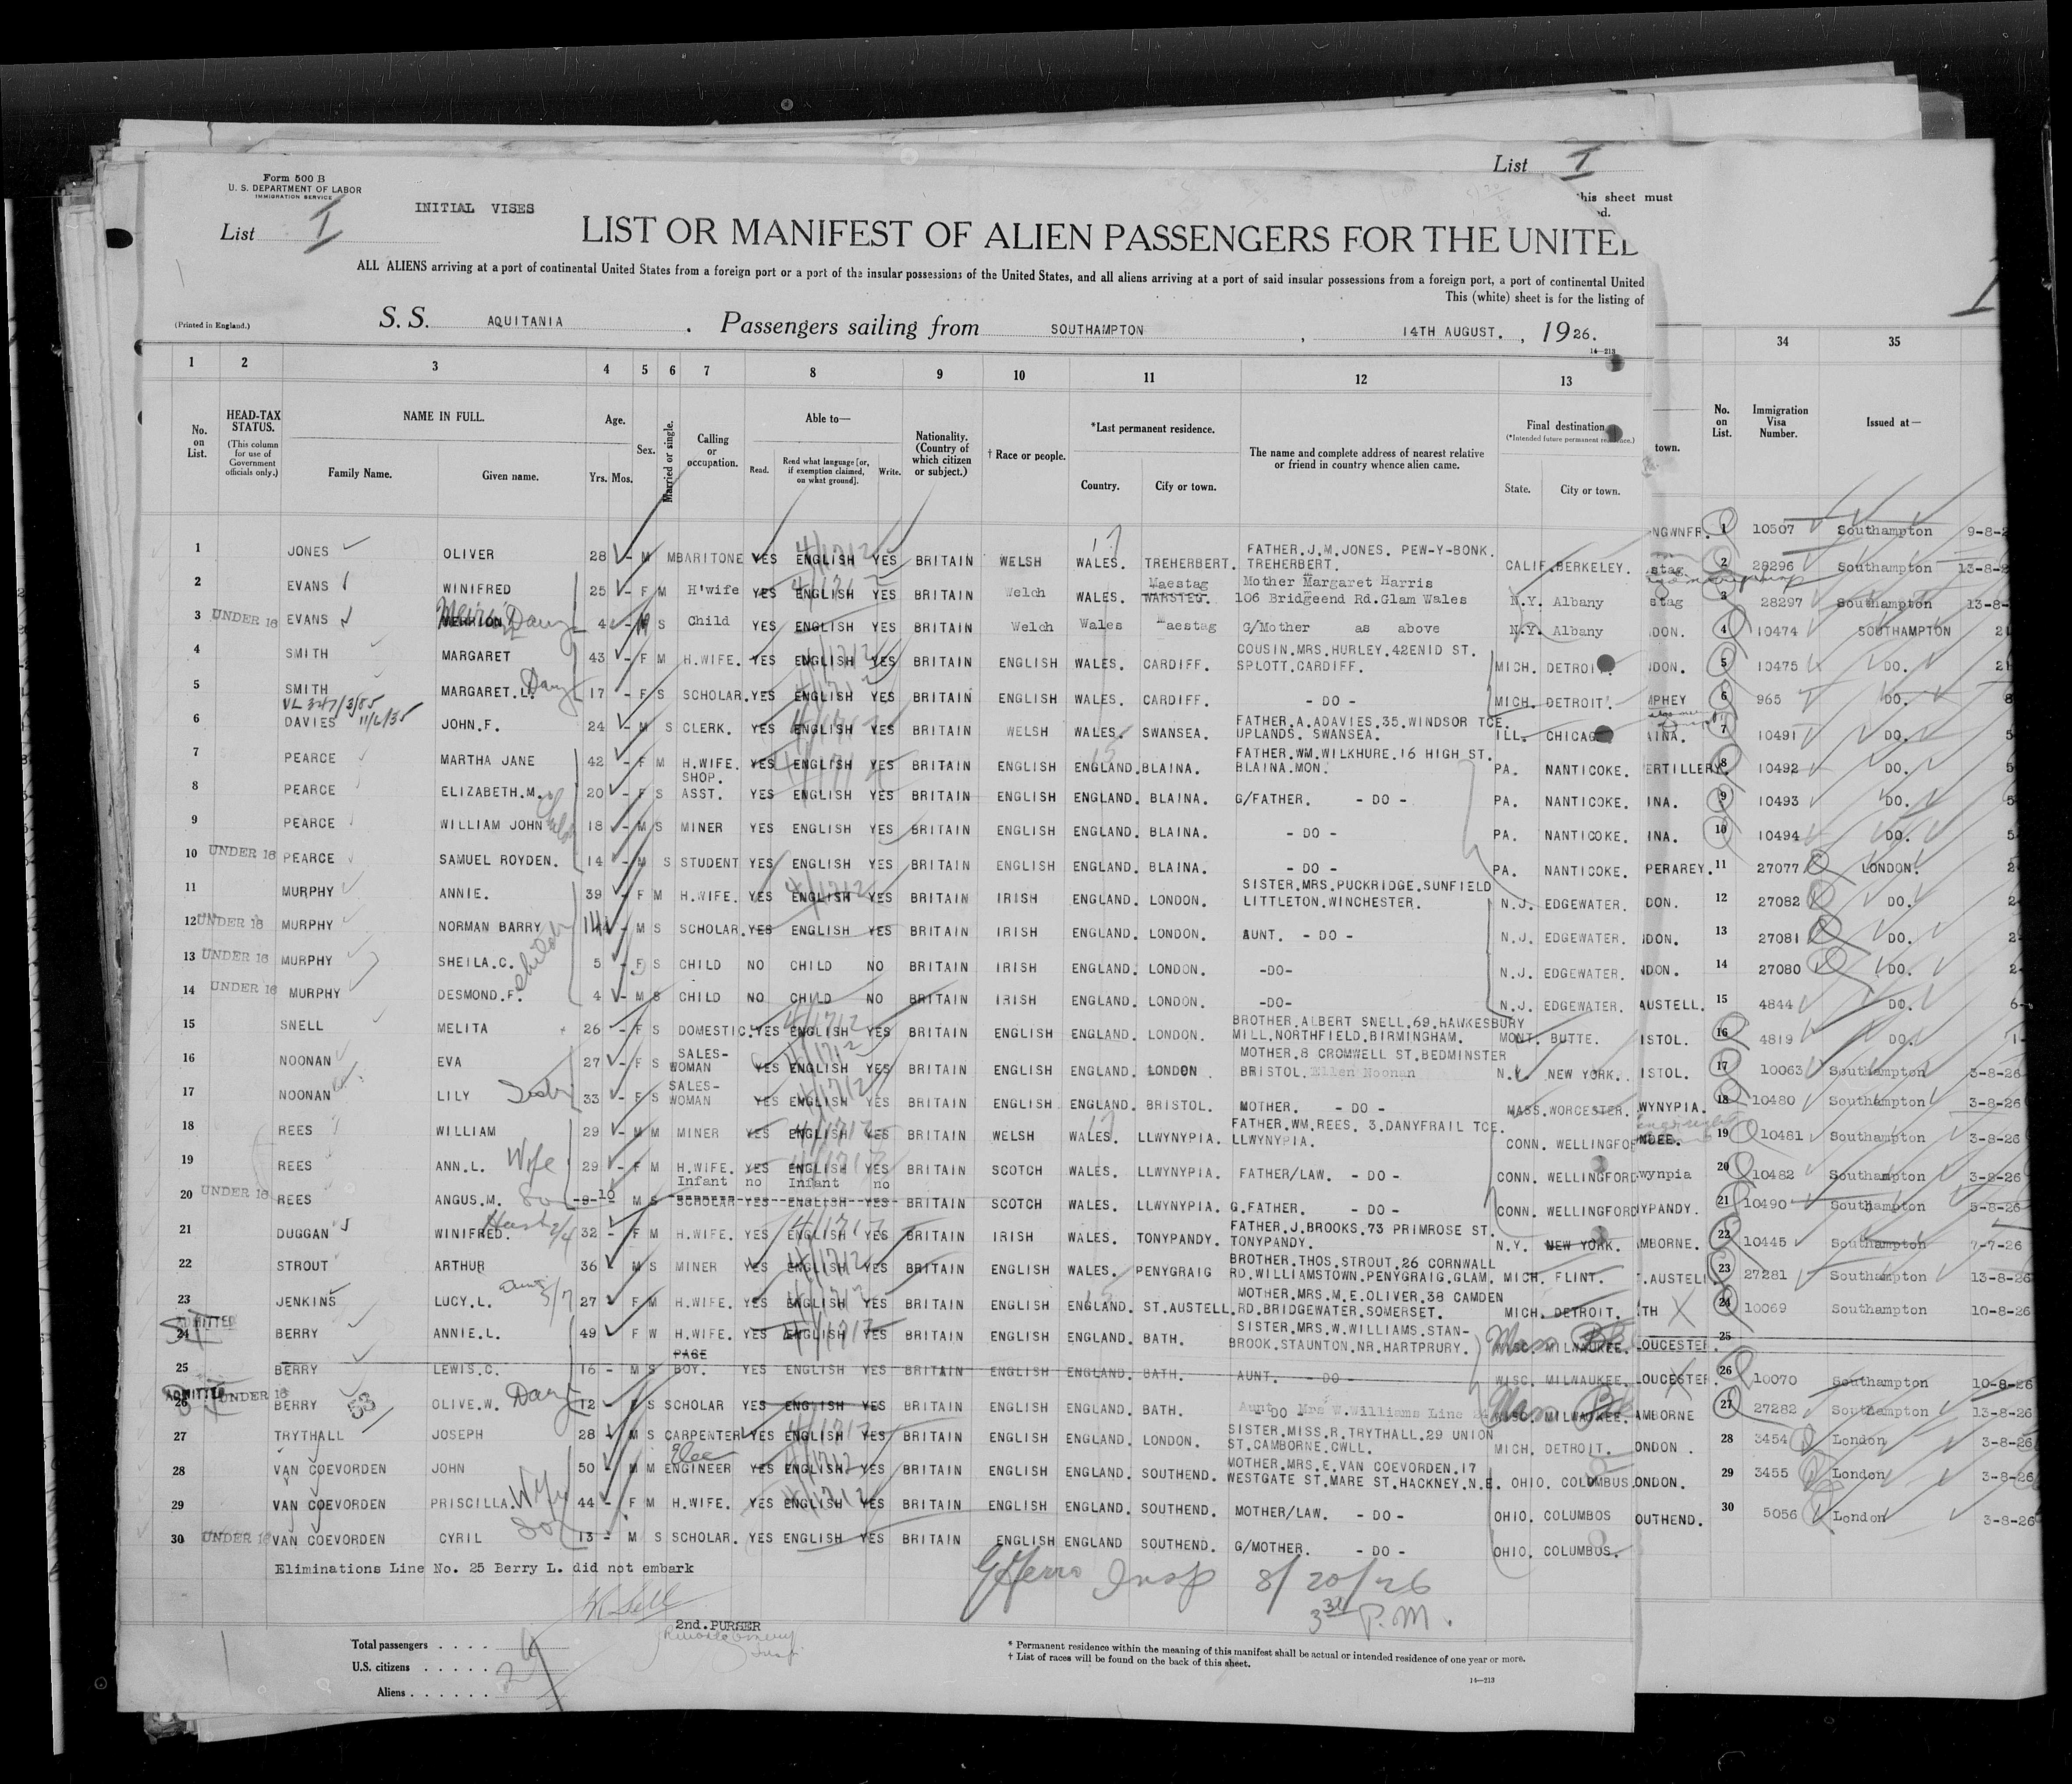 List I
Form 500 B
U. S. DEPARTMENT OF LABOR
IMMIGRATION SERVICE
INITIAL VISES
this sheet must
List I
LIST OR MANIFEST OF ALIEN PASSENGERS FOR THE UNITED
ALL ALIENS arriving at a port of continental United States from a foreign port or a port of the insular possessions of the United States, and all aliens arriving at a port of said insular possessions from a foreign port, a port of continental United
This (white) sheet is for the listing of
(Printed in England.) S. S. AQUITANIA . Passengers sailing from SOUTHAMPTON , 14TH AUGUST. , 1926.
14—213
1 2 3 4 5 6 7 8 9 10 11 12 13 34 35
No. on List.
HEAD-TAX STATUS.
(This column for use of Government officials only.)
NAME IN FULL.
Family Name. Given name.
Age.
Yrs. Mos.
Sex.
Married or single.
Calling or occupation.
Able to—
Read. Read what language [or, if exemption claimed, on what ground]. Write.
Nationality. (Country of which citizen or subject.)
† Race or people.
*Last permanent residence.
Country. City or town.
The name and complete address of nearest relative or friend in country whence alien came.
Final destination
(*Intended future permanent residence.)
State. City or town.
town.
No. on List.
Immigration Visa Number.
Issued at—
1 JONES OLIVER 28 - M M BARITONE YES ENGLISH YES BRITAIN WELSH WALES. TREHERBERT. FATHER.J.M.JONES. PEW-Y-BONK. TREHERBERT. CALIF. BERKELEY.
2 EVANS WINIFRED 25 - F M H'wife YES ENGLISH YES BRITAIN Welch WALES. Maestag WARSTEG. Mother Margaret Harris 106 Bridgeend Rd.Glam Wales N.Y. Albany
3 UNDER 16 EVANS Daug 4 - S Child YES ENGLISH YES BRITAIN Welch Wales Maestag G/Mother as above N.Y. Albany
4 SMITH MARGARET 43 - F M H.WIFE. YES ENGLISH YES BRITAIN ENGLISH WALES. CARDIFF. COUSIN.MRS.HURLEY.42ENID ST. SPLOTT.CARDIFF. MICH. DETROIT
5 SMITH MARGARET.L. Daug 17 - F S SCHOLAR. YES ENGLISH YES BRITAIN ENGLISH WALES. CARDIFF. - DO - MICH. DETROIT.
6 DAVIES 11/6/35 JOHN.F. 24 - M S CLERK. YES ENGLISH YES BRITAIN WELSH WALES. SWANSEA. FATHER.A.ADAVIES.35.WINDSOR TCE. UPLANDS. SWANSEA. ILL. CHICAGO
7 PEARCE MARTHA JANE 42 - F M H.WIFE. YES ENGLISH YES BRITAIN ENGLISH ENGLAND. BLAINA. FATHER.WM.WILKHURE.16 HIGH ST. BLAINA.MON. PA. NANTICOKE.
8 PEARCE ELIZABETH.M. 20 - F S SHOP. ASST. YES ENGLISH YES BRITAIN ENGLISH ENGLAND. BLAINA. G/FATHER. - DO - PA. NANTICOKE.
9 PEARCE WILLIAM JOHN 18 - M S MINER YES ENGLISH YES BRITAIN ENGLISH ENGLAND. BLAINA. - DO - PA. NANTICOKE.
10 UNDER 16 PEARCE SAMUEL ROYDEN. 14 - M S STUDENT YES ENGLISH YES BRITAIN ENGLISH ENGLAND. BLAINA. - DO - PA. NANTICOKE.
11 MURPHY ANNIE. 39 - F M H.WIFE. YES ENGLISH YES BRITAIN IRISH ENGLAND. LONDON. SISTER.MRS.PUCKRIDGE.SUNFIELD LITTLETON.WINCHESTER. N.J. EDGEWATER.
12 UNDER 16 MURPHY NORMAN BARRY 14 - M S SCHOLAR. YES ENGLISH YES BRITAIN IRISH ENGLAND. LONDON. AUNT. - DO - N.J. EDGEWATER.
13 UNDER 16 MURPHY SHEILA.C. 5 - F S CHILD NO CHILD NO BRITAIN IRISH ENGLAND. LONDON. -DO- N.J. EDGEWATER.
14 UNDER 16 MURPHY DESMOND.F. 4 - M S CHILD NO CHILD NO BRITAIN IRISH ENGLAND. LONDON. -DO- N.J. EDGEWATER.
15 SNELL MELITA 26 - F S DOMESTIC. YES ENGLISH YES BRITAIN ENGLISH ENGLAND. LONDON. BROTHER.ALBERT SNELL.69.HAWKESBURY MILL.NORTHFIELD.BIRMINGHAM. MONT. BUTTE.
16 NOONAN EVA 27 - F S SALES-WOMAN YES ENGLISH YES BRITAIN ENGLISH ENGLAND. LONDON. MOTHER.8 CROMWELL ST.BEDMINSTER BRISTOL.Ellen Noonan N.Y. NEW YORK.
17 NOONAN LILY 33 - F S SALES-WOMAN YES ENGLISH YES BRITAIN ENGLISH ENGLAND. BRISTOL. MOTHER. - DO - MASS. WORCESTER.
18 REES WILLIAM 29 - M M MINER YES ENGLISH YES BRITAIN WELSH WALES. LLWYNYPIA. FATHER.WM.REES. 3.DANYFRAIL TCE. LLWYNYPIA. CONN. WELLINGFO
19 REES ANN.L. Wife 29 - F M H.WIFE. YES ENGLISH YES BRITAIN SCOTCH WALES. LLWYNYPIA. FATHER/LAW. - DO - CONN. WELLINGFORD
20 UNDER 16 REES ANGUS.M. So 9 10 - M S Infant SCHOLAR no YES Infant ENGLISH no YES BRITAIN SCOTCH WALES. LLWYNYPIA. G.FATHER. - DO - CONN. WELLINGFORD
21 DUGGAN WINIFRED. 32 - F M H.WIFE. YES ENGLISH YES BRITAIN IRISH WALES. TONYPANDY. FATHER.J.BROOKS.73 PRIMROSE ST. TONYPANDY. N.Y. NEW YORK.
22 STROUT ARTHUR 36 M S MINER YES ENGLISH YES BRITAIN ENGLISH WALES. PENYGRAIG BROTHER.THOS.STROUT.26 CORNWALL RD.WILLIAMSTOWN.PENYGRAIG.GLAM. MICH. FLINT.
23 JENKINS LUCY.L. 27 F M H.WIFE. YES ENGLISH YES BRITAIN ENGLISH ENGLAND. ST.AUSTELL. MOTHER.MRS.M.E.OLIVER.38 CAMDEN RD.BRIDGEWATER.SOMERSET. MICH. DETROIT.
24 ADMITTED BERRY ANNIE.L. 49 F W H.WIFE. YES ENGLISH YES BRITAIN ENGLISH ENGLAND. BATH. SISTER.MRS.W.WILLIAMS.STAN-BROOK.STAUNTON.NR.HARTPRURY. WISC. MILWAUKEE.
25 BERRY LEWIS.C. 16 - M S PAGE BOY. YES ENGLISH YES BRITAIN ENGLISH ENGLAND. BATH. AUNT. - DO - WISC. MILWAUKEE.
26 ADMITTED UNDER 16 BERRY 53 OLIVE.W. Daug 12 F S SCHOLAR YES ENGLISH YES BRITAIN ENGLISH ENGLAND. BATH. Aunt DO - Mrs W.Williams Line 24 WISC. MILWAUKEE.
27 TRYTHALL JOSEPH 28 M S CARPENTER YES ENGLISH YES BRITAIN ENGLISH ENGLAND. LONDON. SISTER.MISS.R.TRYTHALL.29 UNION ST.CAMBORNE.CWLL. MICH. DETROIT.
28 VAN COEVORDEN JOHN 50 - M M Elec ENGINEER YES ENGLISH YES BRITAIN ENGLISH ENGLAND. SOUTHEND. MOTHER.MRS.E.VAN COEVORDEN.17 WESTGATE ST.MARE ST.HACKNEY.N.E. OHIO. COLUMBUS
29 VAN COEVORDEN PRISCILLA. Wife 44 - F M H.WIFE. YES ENGLISH YES BRITAIN ENGLISH ENGLAND. SOUTHEND. MOTHER/LAW. - DO - OHIO. COLUMBUS
30 UNDER 16 VAN COEVORDEN CYRIL 13 - M S SCHOLAR. YES ENGLISH YES BRITAIN ENGLISH ENGLAND SOUTHEND. G/MOTHER. - DO - OHIO. COLUMBUS.
NGWNFR. 1 10507 Southampton 9-8-2
stag 2 28296 Southampton 13-8-2
stag 3 28297 Southampton 13-8-
DON. 4 10474 SOUTHAMPTON 2
NDON. 5 10475 DO. 2
MPHEY 6 965 DO. 8
AINA. 7 10491 DO. 5
ERTILLERY. 8 10492 DO. 5
INA. 9 10493 DO. 5
INA. 10 10494 DO. 5
PERAREY. 11 27077 LONDON. 2
DON. 12 27082 DO. 2
NDON. 13 27081 DO. 2-
NDON. 14 27080 DO. 2-
AUSTELL. 15 4844 DO. 6-
ISTOL. 16 4819 DO. 1-
ISTOL. 17 10063 Southampton 3-8-26
WYNYPIA. 18 10480 Southampton 3-8-26
NDEE. 19 10481 Southampton 3-8-26
wynpia 20 10482 Southampton 3-8-26
YPANDY. 21 10490 Southampton 5-8-26
MBORNE. 22 10445 Southampton 7-7-26
.AUSTELL 23 27281 Southampton 13-8-26
TH 24 10069 Southampton 10-8-26
OUCESTER. 25
OUCESTER. 26 10070 Southampton 10-8-26
AMBORNE 27 27282 Southampton 13-8-26
ONDON. 28 3454 London 3-8-26
ONDON. 29 3455 London 3-8-26
OUTHEND. 30 5056 London 3-8-26
Eliminations Line No. 25 Berry L. did not embark
Insp 8/20/26
3 P.M.
2nd.PURSER
Total passengers . . . .
U.S. citizens . . . . .
Aliens . . . . . .
* Permanent residence within the meaning of this manifest shall be actual or intended residence of one year or more.
† List of races will be found on the back of this sheet.
14—213